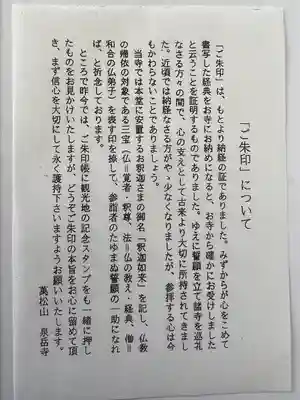 「ご朱印」について
「ご朱印」は、もとより納経の証でありました。みずからが心をこめて
書写した経典をお寺にお納めになると、お寺から確かにお受けしました
と云うことを証明するものでありました。ゆえに誓願を立て諸寺を巡礼
なさる方々の間で、心の支えとして古来より大切に所持されてきまし
た。近頃では納経なさる方がや、少なくなりましたが、参拝する心は今
もかわらないことでありましょう。
当寺では本堂に安置するお釈迦さまの御名「釈迦如来」を記し、仏教
の帰依の対象である三宝（仏＝覚者・釈尊、法＝仏の教え・経典、僧＝
和合の仏弟子）を表す印を捺して、参詣者のたゆまぬ誓願の一助になれ
ば、と祈念しております。
ところで昨今では、ご朱印帳に観光地の記念スタンプをも一緒に押し
たものをお見かけいたしますが、どうぞご朱印の本旨をお心に留めて頂
き、まず信心を大切にして永く護持下さいますようお願いいたします。
萬松山　泉岳寺